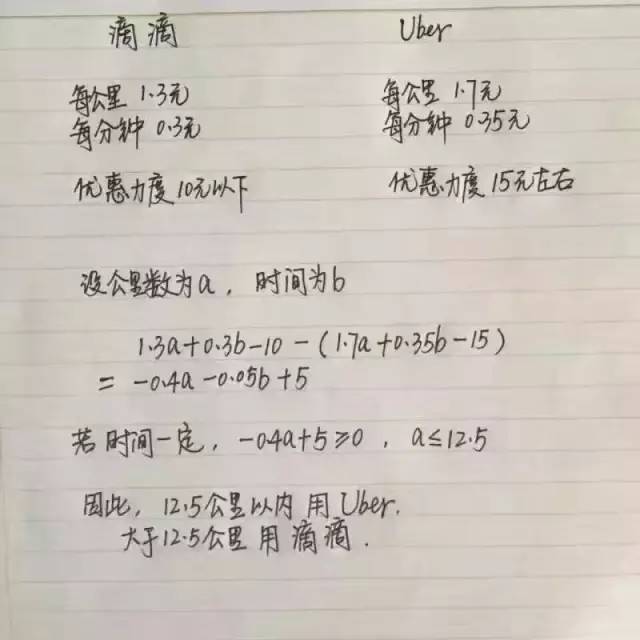 滴滴 Uber
每公里 1.3元 每公里 1.7元
每分钟 0.3元 每分钟 0.35元
优惠力度10元以下 优惠力度15元左右
设公里数为a，时间为b
1.3a+0.3b-10-(1.7a+0.35b-15)
= -0.4a-0.05b+5
若时间一定，-0.4a+5≥0，a≤12.5
因此，12.5公里以内 用 Uber.
大于12.5公里 用 滴滴.